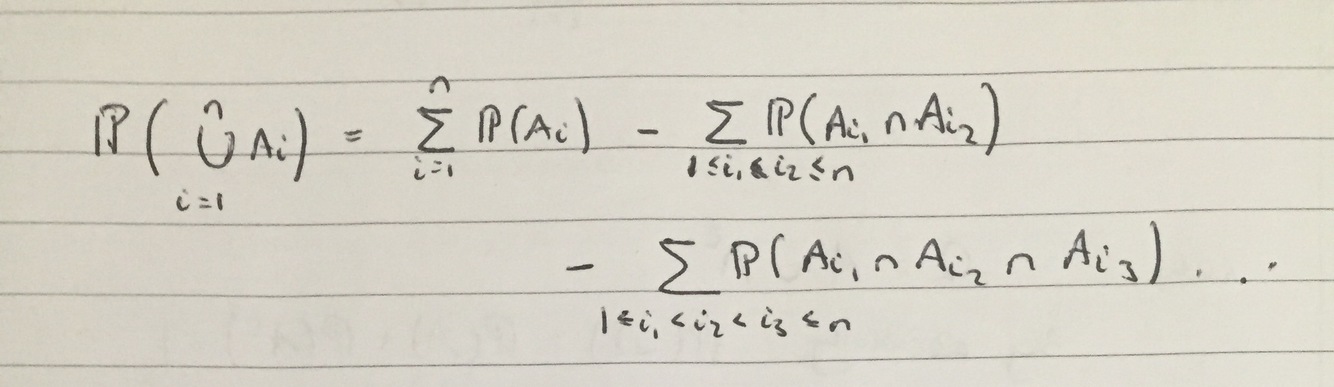 ℙ(⋃_{i=1}^{n} A_i) = ∑_{i=1}^{n} ℙ(A_i) - ∑_{1≤i_1<i_2≤n} ℙ(A_{i_1} ∩ A_{i_2})
- ∑_{1≤i_1<i_2<i_3≤n} ℙ(A_{i_1} ∩ A_{i_2} ∩ A_{i_3}) ...